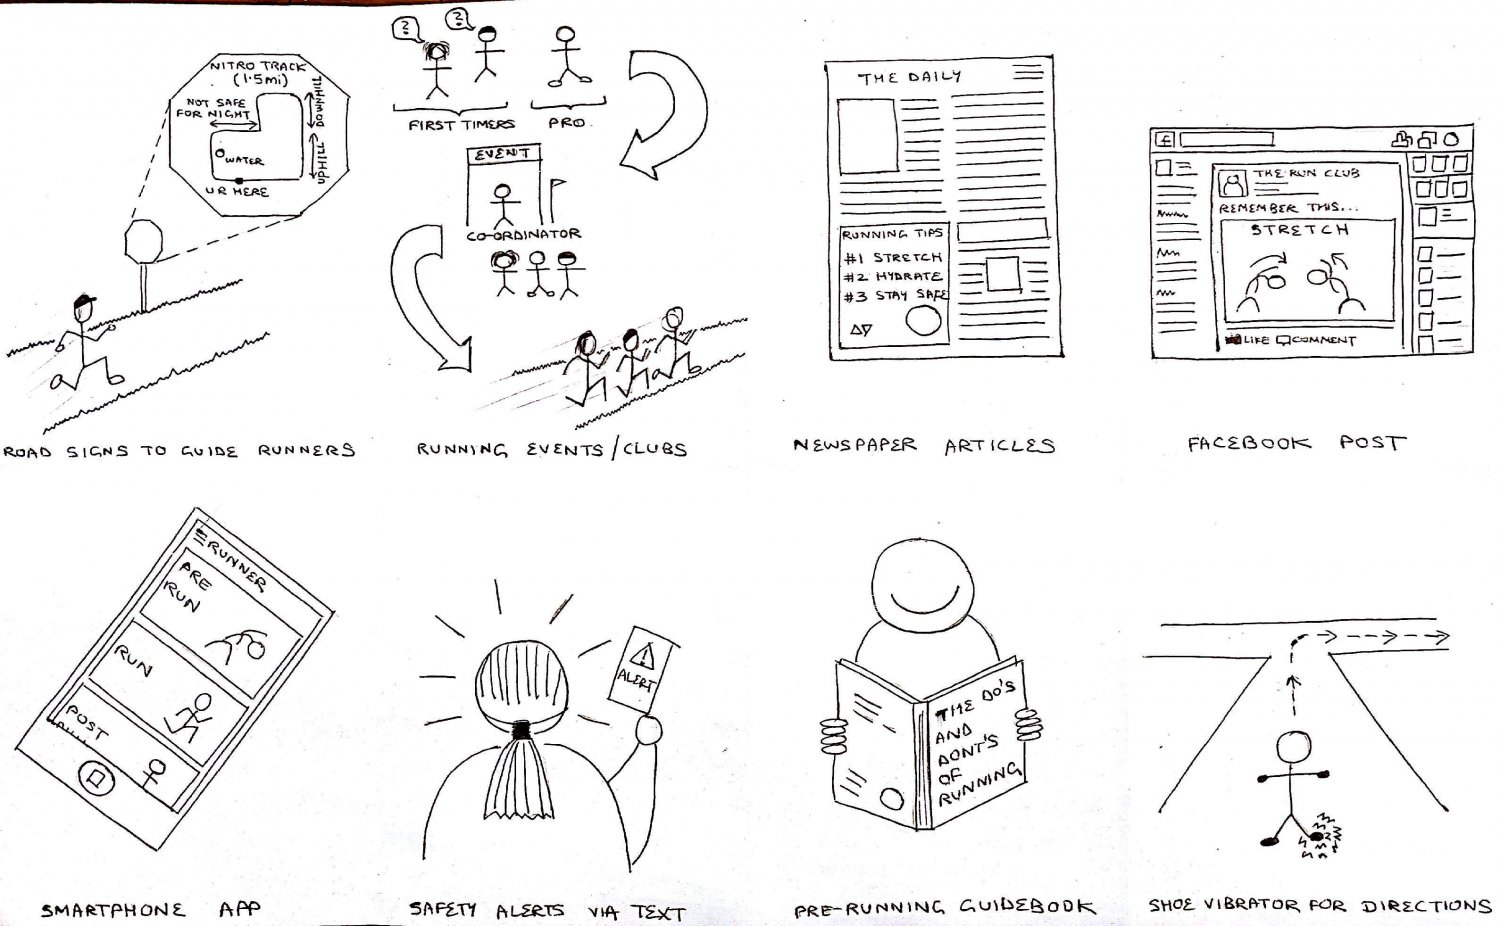 NITRO TRACK
(1.5mi)
NOT SAFE
FOR NIGHT
DOWNHILL
UPHILL
WATER
U R HERE
ROAD SIGNS TO GUIDE RUNNERS
?
?
FIRST TIMERS
PRO.
EVENT
CO-ORDINATOR
RUNNING EVENTS/CLUBS
THE DAILY
RUNNING TIPS
#1 STRETCH
#2 HYDRATE
#3 STAY SAFE
NEWSPAPER ARTICLES
f
THE RUN CLUB
REMEMBER THIS...
STRETCH
LIKE
COMMENT
FACEBOOK POST
RUNNER
PRE
RUN
RUN
POST
SMARTPHONE APP
!
ALERT
SAFETY ALERTS VIA TEXT
THE DO'S
AND
DONT'S
OF
RUNNING
PRE-RUNNING GUIDEBOOK
SHOE VIBRATOR FOR DIRECTIONS